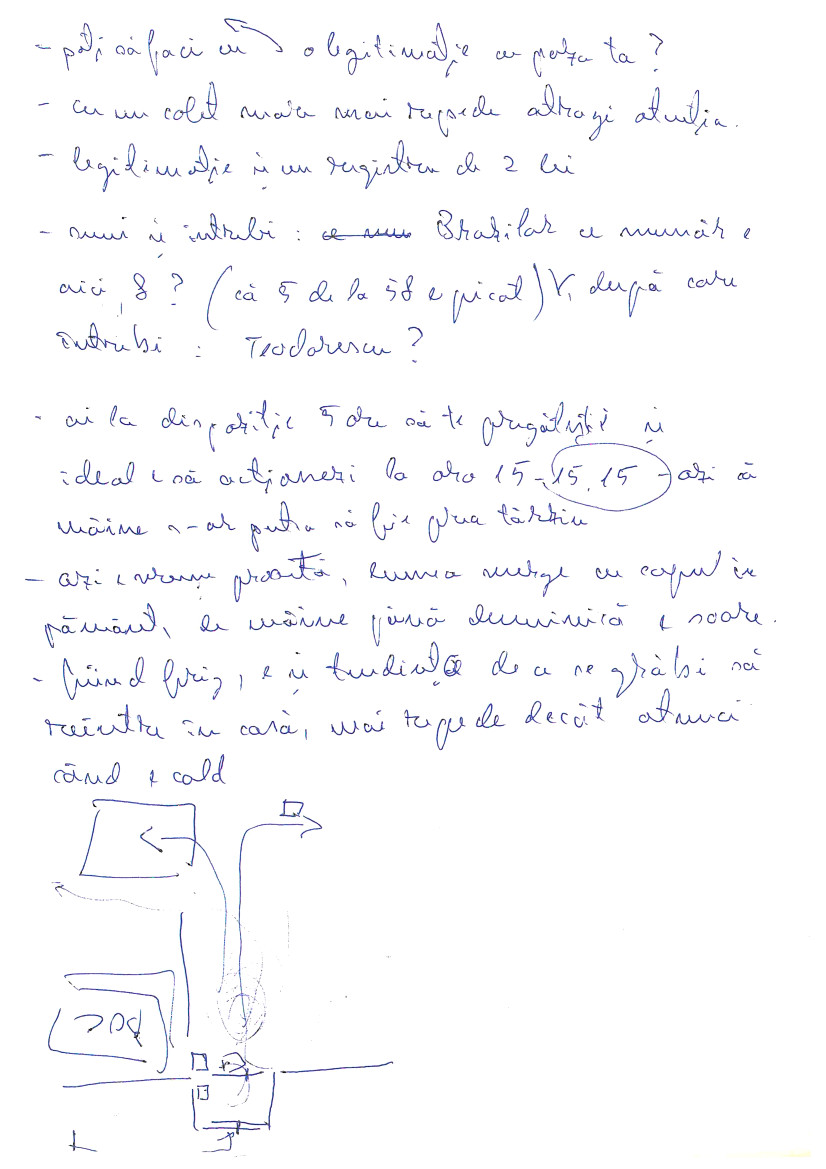 - poți să faci cu o legitimație cu poza ta?
- cu un colet mare mai repede atragi atenția.
- legitimație și un registru de 2 lei
- suni și întrebi: Brazilor ce număr e
aici, 8? (că 5 de la 58 e picat) după care
întrebi: Teodorescu?
- ai la dispoziție 5 ore să te pregătești și
ideal e să acționezi la ora 15-15,15 - azi că
mâine s-ar putea să fie prea târziu
- azi e vreme proastă, lumea merge cu capul în
pământ, de mâine până duminică e soare.
- fiind frig, e și tendința de a se grăbi să
reintre în casă, mai repede decât atunci
când e cald